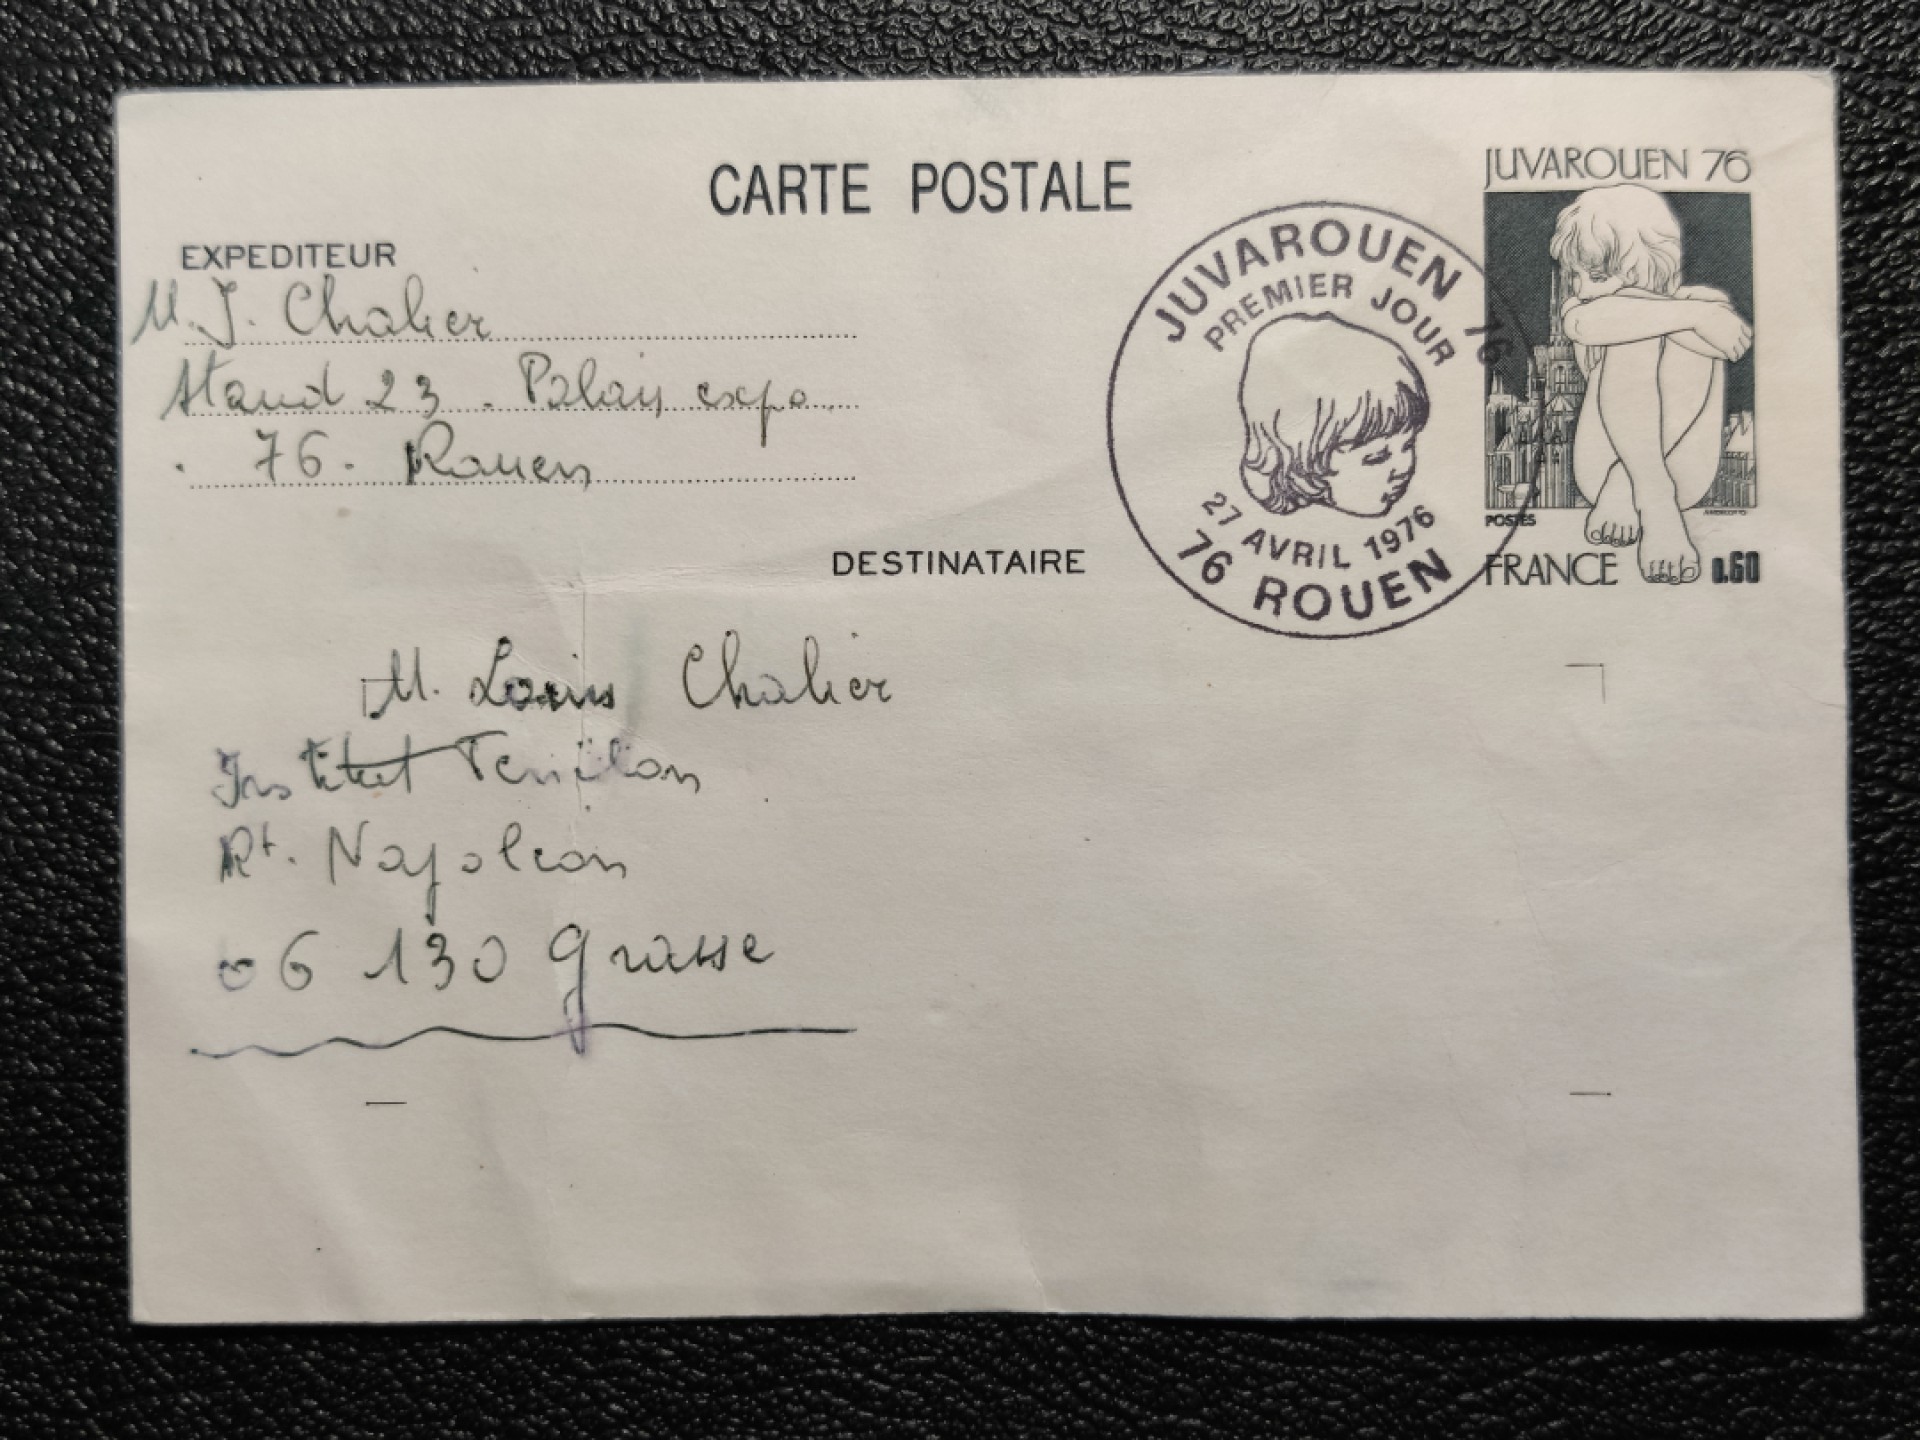 CARTE POSTALE
JUVAROUEN 76
EXPEDITEUR
M. J. Chalier
Stand 23 . Palais expo
76. Rouen
JUVAROUEN 76
PREMIER JOUR
27 AVRIL 1976
76 ROUEN
POSTES
FRANCE 0.60
DESTINATAIRE
M. Louis Chalier
Institut Fénélon
Rt. Napoléon
06 130 Grasse